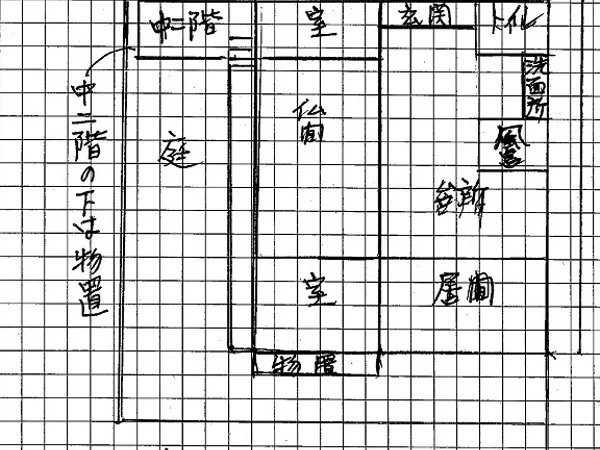 中二階
室
玄関
トイレ
洗面所
中二階の下は物置
仏間
庭
風呂
台所
室
居間
物置